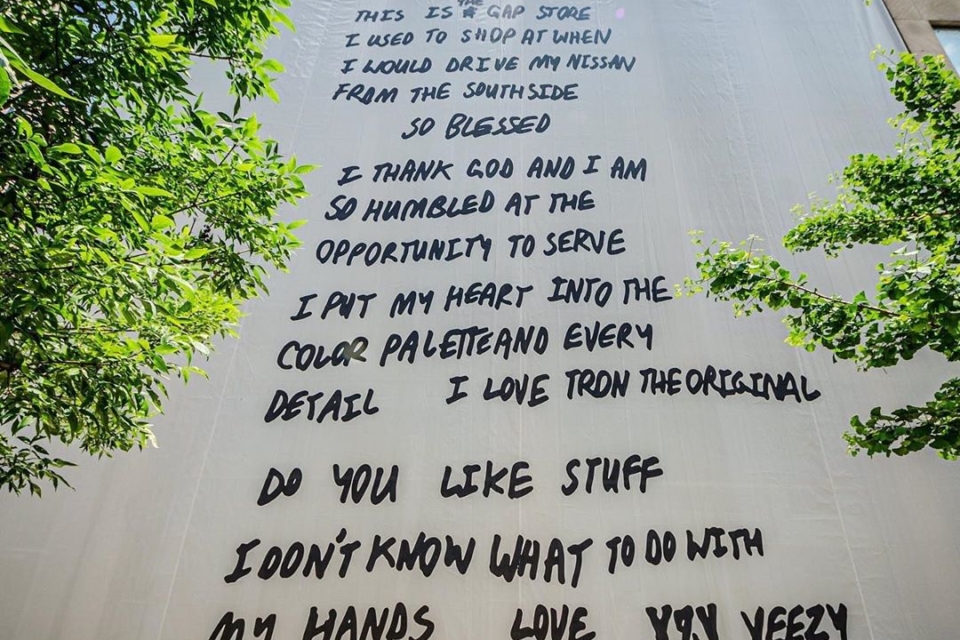 THE
THIS IS GAP STORE
I USED TO SHOP AT WHEN
I WOULD DRIVE MY NISSAN
FROM THE SOUTHSIDE
SO BLESSED
I THANK GOD AND I AM
SO HUMBLED AT THE
OPPORTUNITY TO SERVE
I PUT MY HEART INTO THE
COLOR PALETTE AND EVERY
DETAIL I LOVE TRON THE ORIGINAL
DO YOU LIKE STUFF
I DON'T KNOW WHAT TO DO WITH
MY HANDS LOVE YEEZY